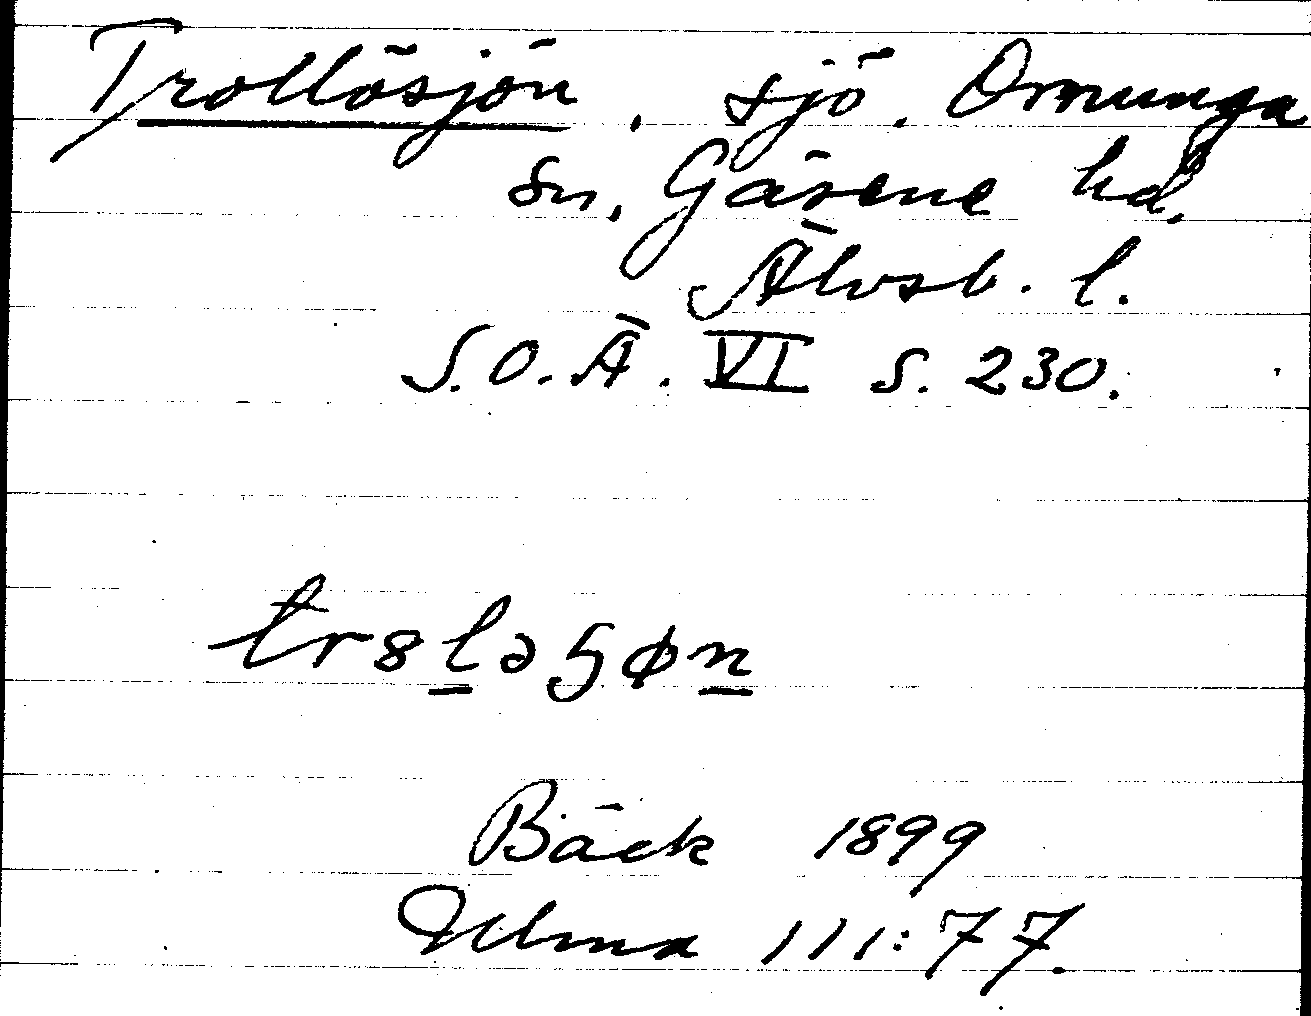 Trollösjön, sjö. Ornunga
sn, Gäsene hd,
Älvsb. l.
S.O.Ä. VI s. 230.
tr8l̲əꞔøn̲
Bäck 1899
Ulma 111:77.